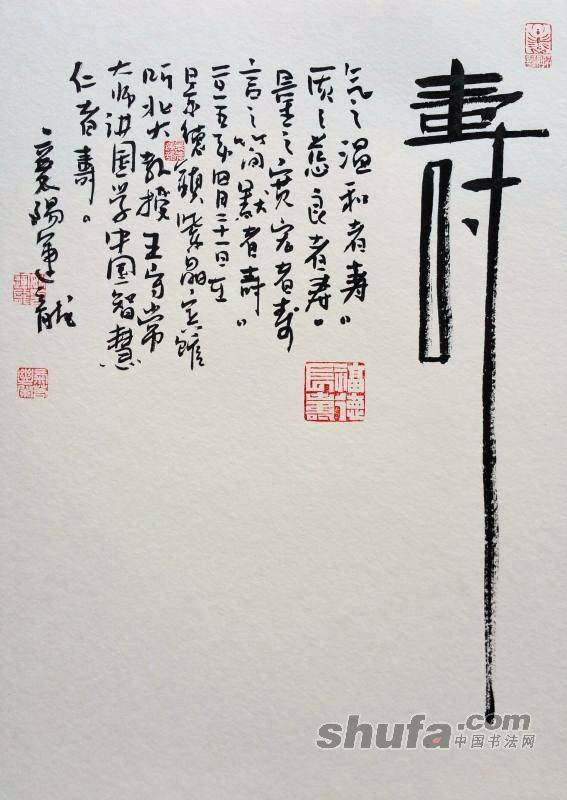 壽
氣之温和者寿。
质之慈良者寿。
量之宽宏者寿
言之简默者寿。
二〇一五年四月二十一日在
景德镇紫晶宾馆
听北大教授王守常
大师讲国学中国智慧
仁者寿。
襄阳
福德長壽
shufa.com
中国书法网